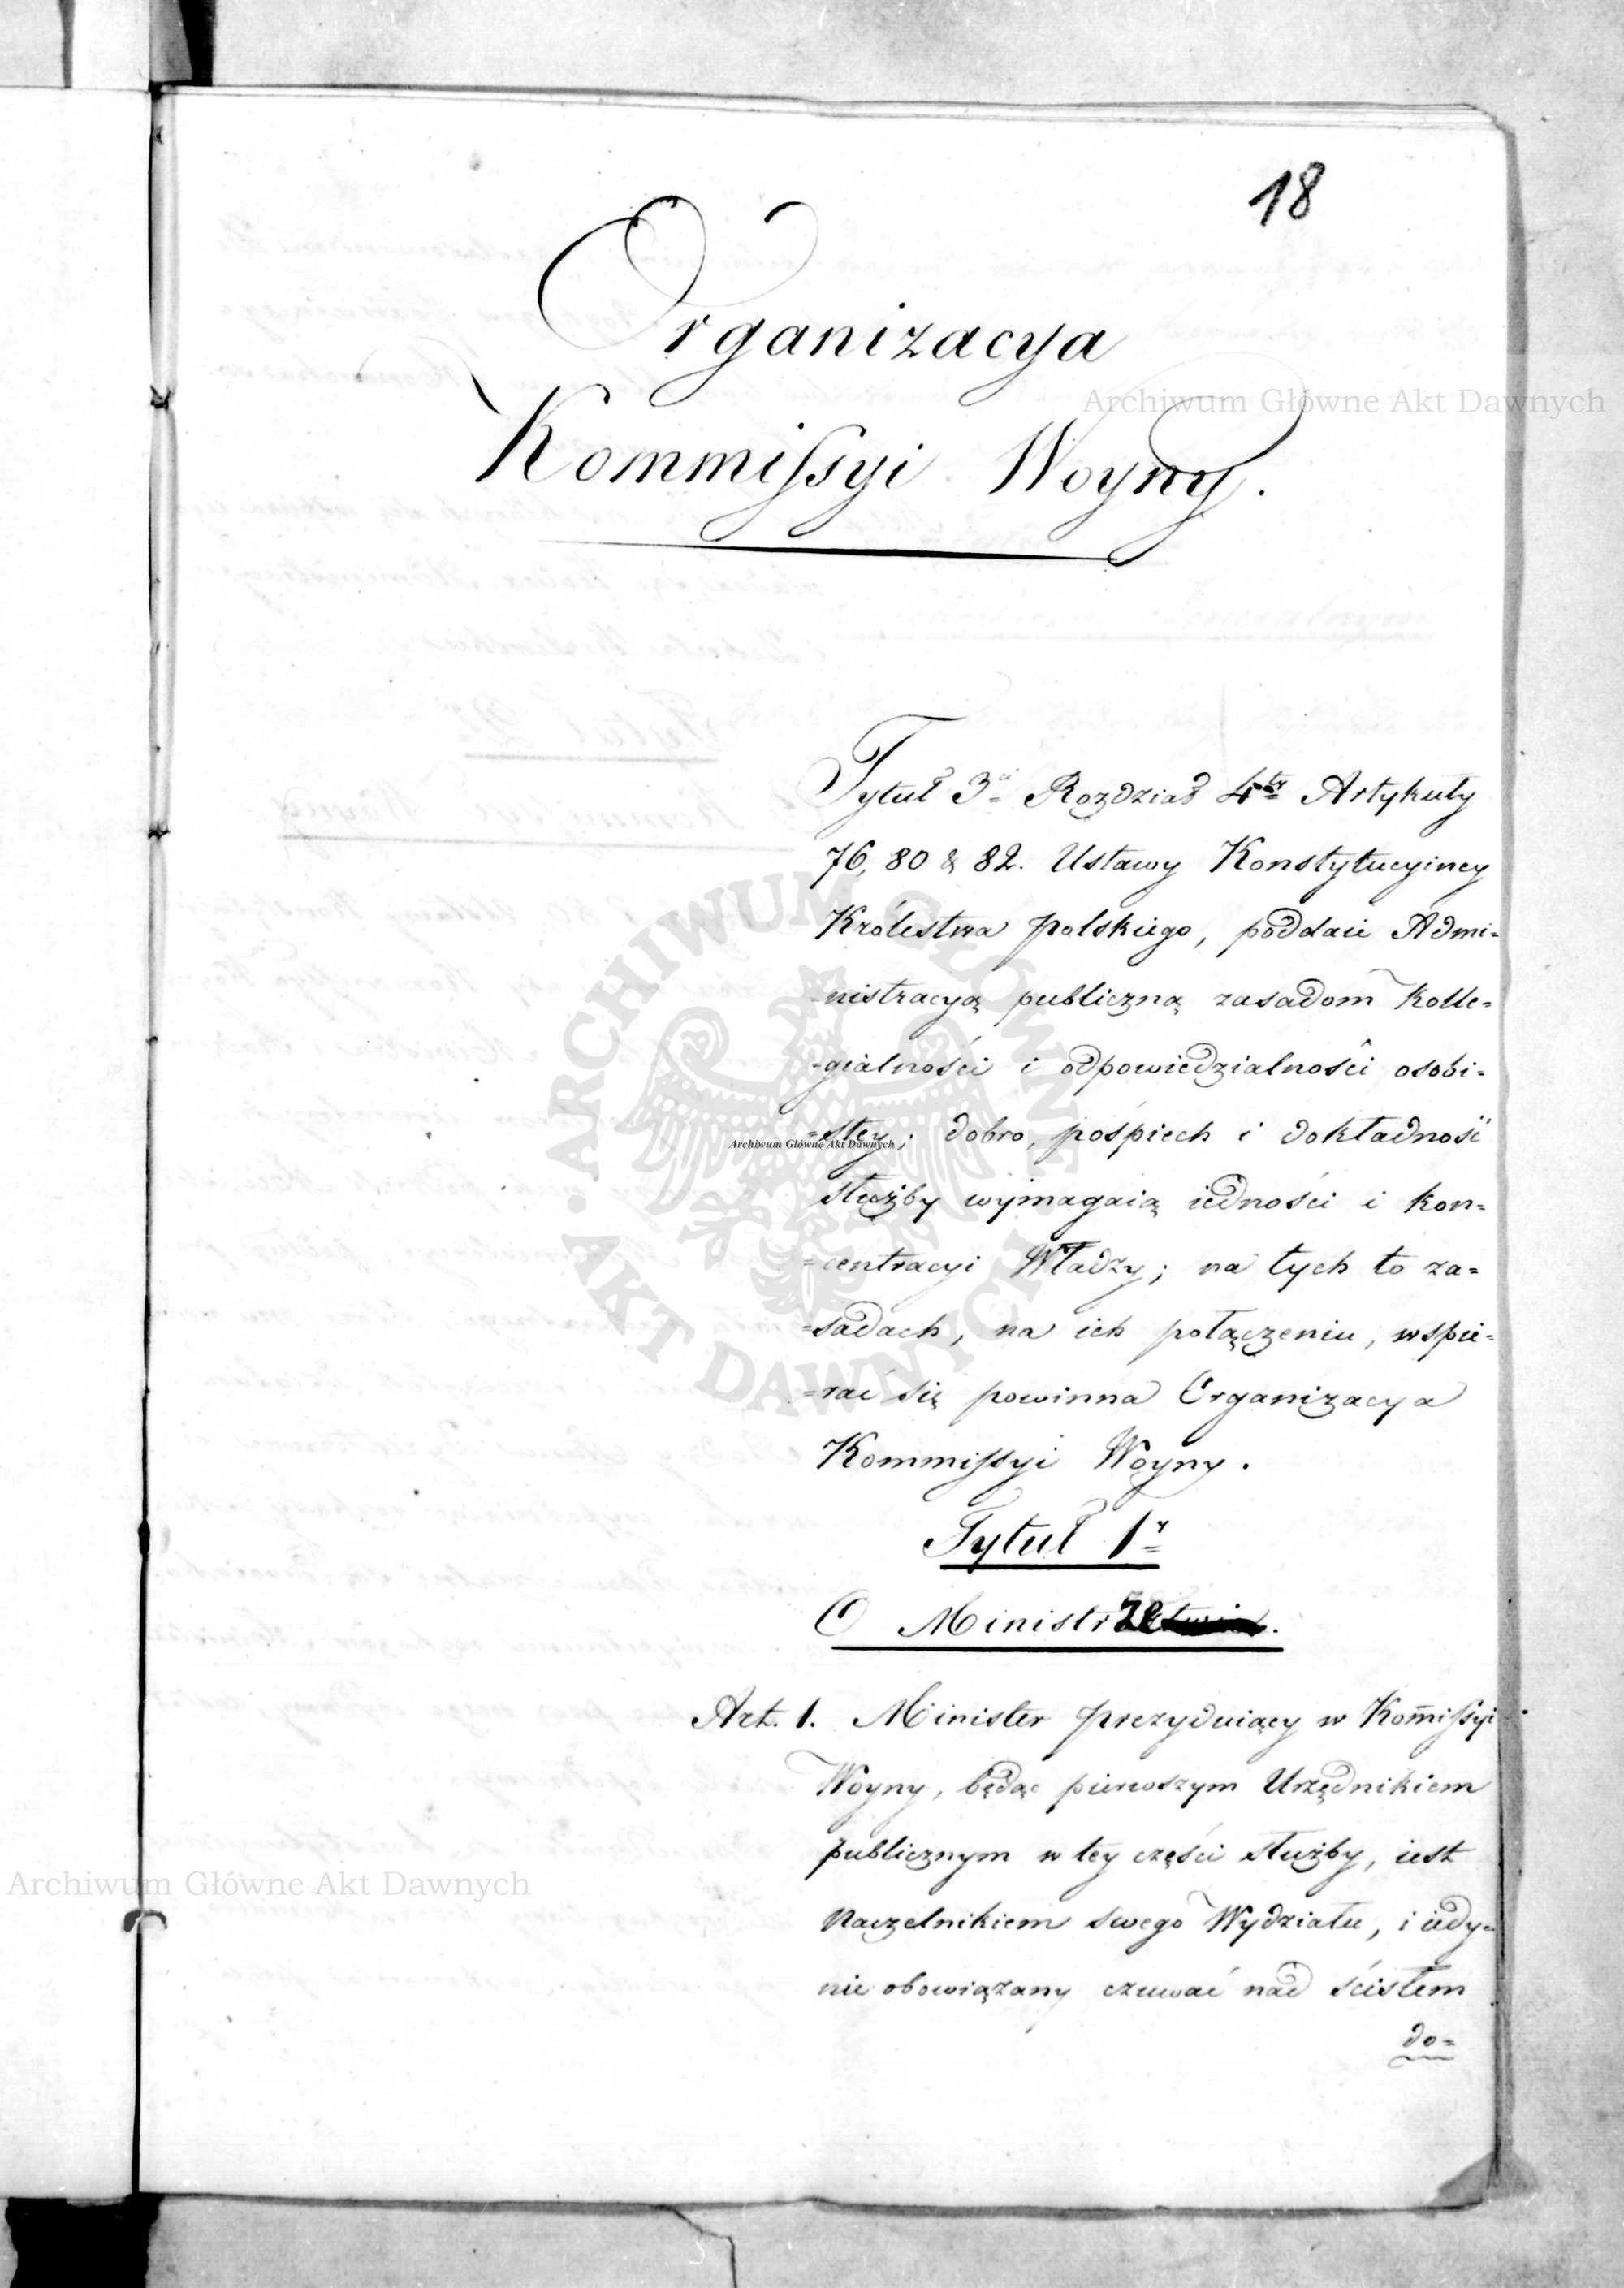 18
Organizacya
Kommissyi Woyny.
Tytuł 3ci Rozdział 4ty Artykuły
76, 80 & 82. Ustawy Konstytucyiney
Królestwa polskiego, poddaie Admi=
=nistracyą publiczną zasadom kolle=
=gialności i odpowiedzialności osobi=
=stey; dobro, pośpiech i dokładność
służby wymagaią iedności i kon=
=centracyi Władzy; na tych to za=
=sadach, na ich połączeniu, wspie=
=rać się powinna Organizacya
Kommissyi Woyny.
Tytuł 1y
O Ministrze.
Art. 1. Minister prezyduiący w Kom̄issyi
Woyny, będąc pierwszym Urzędnikiem
publicznym w tey części służby, iest
Naczelnikiem swego Wydziału, i iedy=
nie obowiązany czuwać nad ścisłem
do=
Archiwum Główne Akt Dawnych
ARCHIWUM GŁÓWNE
AKT DAWNYCH
Archiwum Główne Akt Dawnych
Archiwum Główne Akt Dawnych